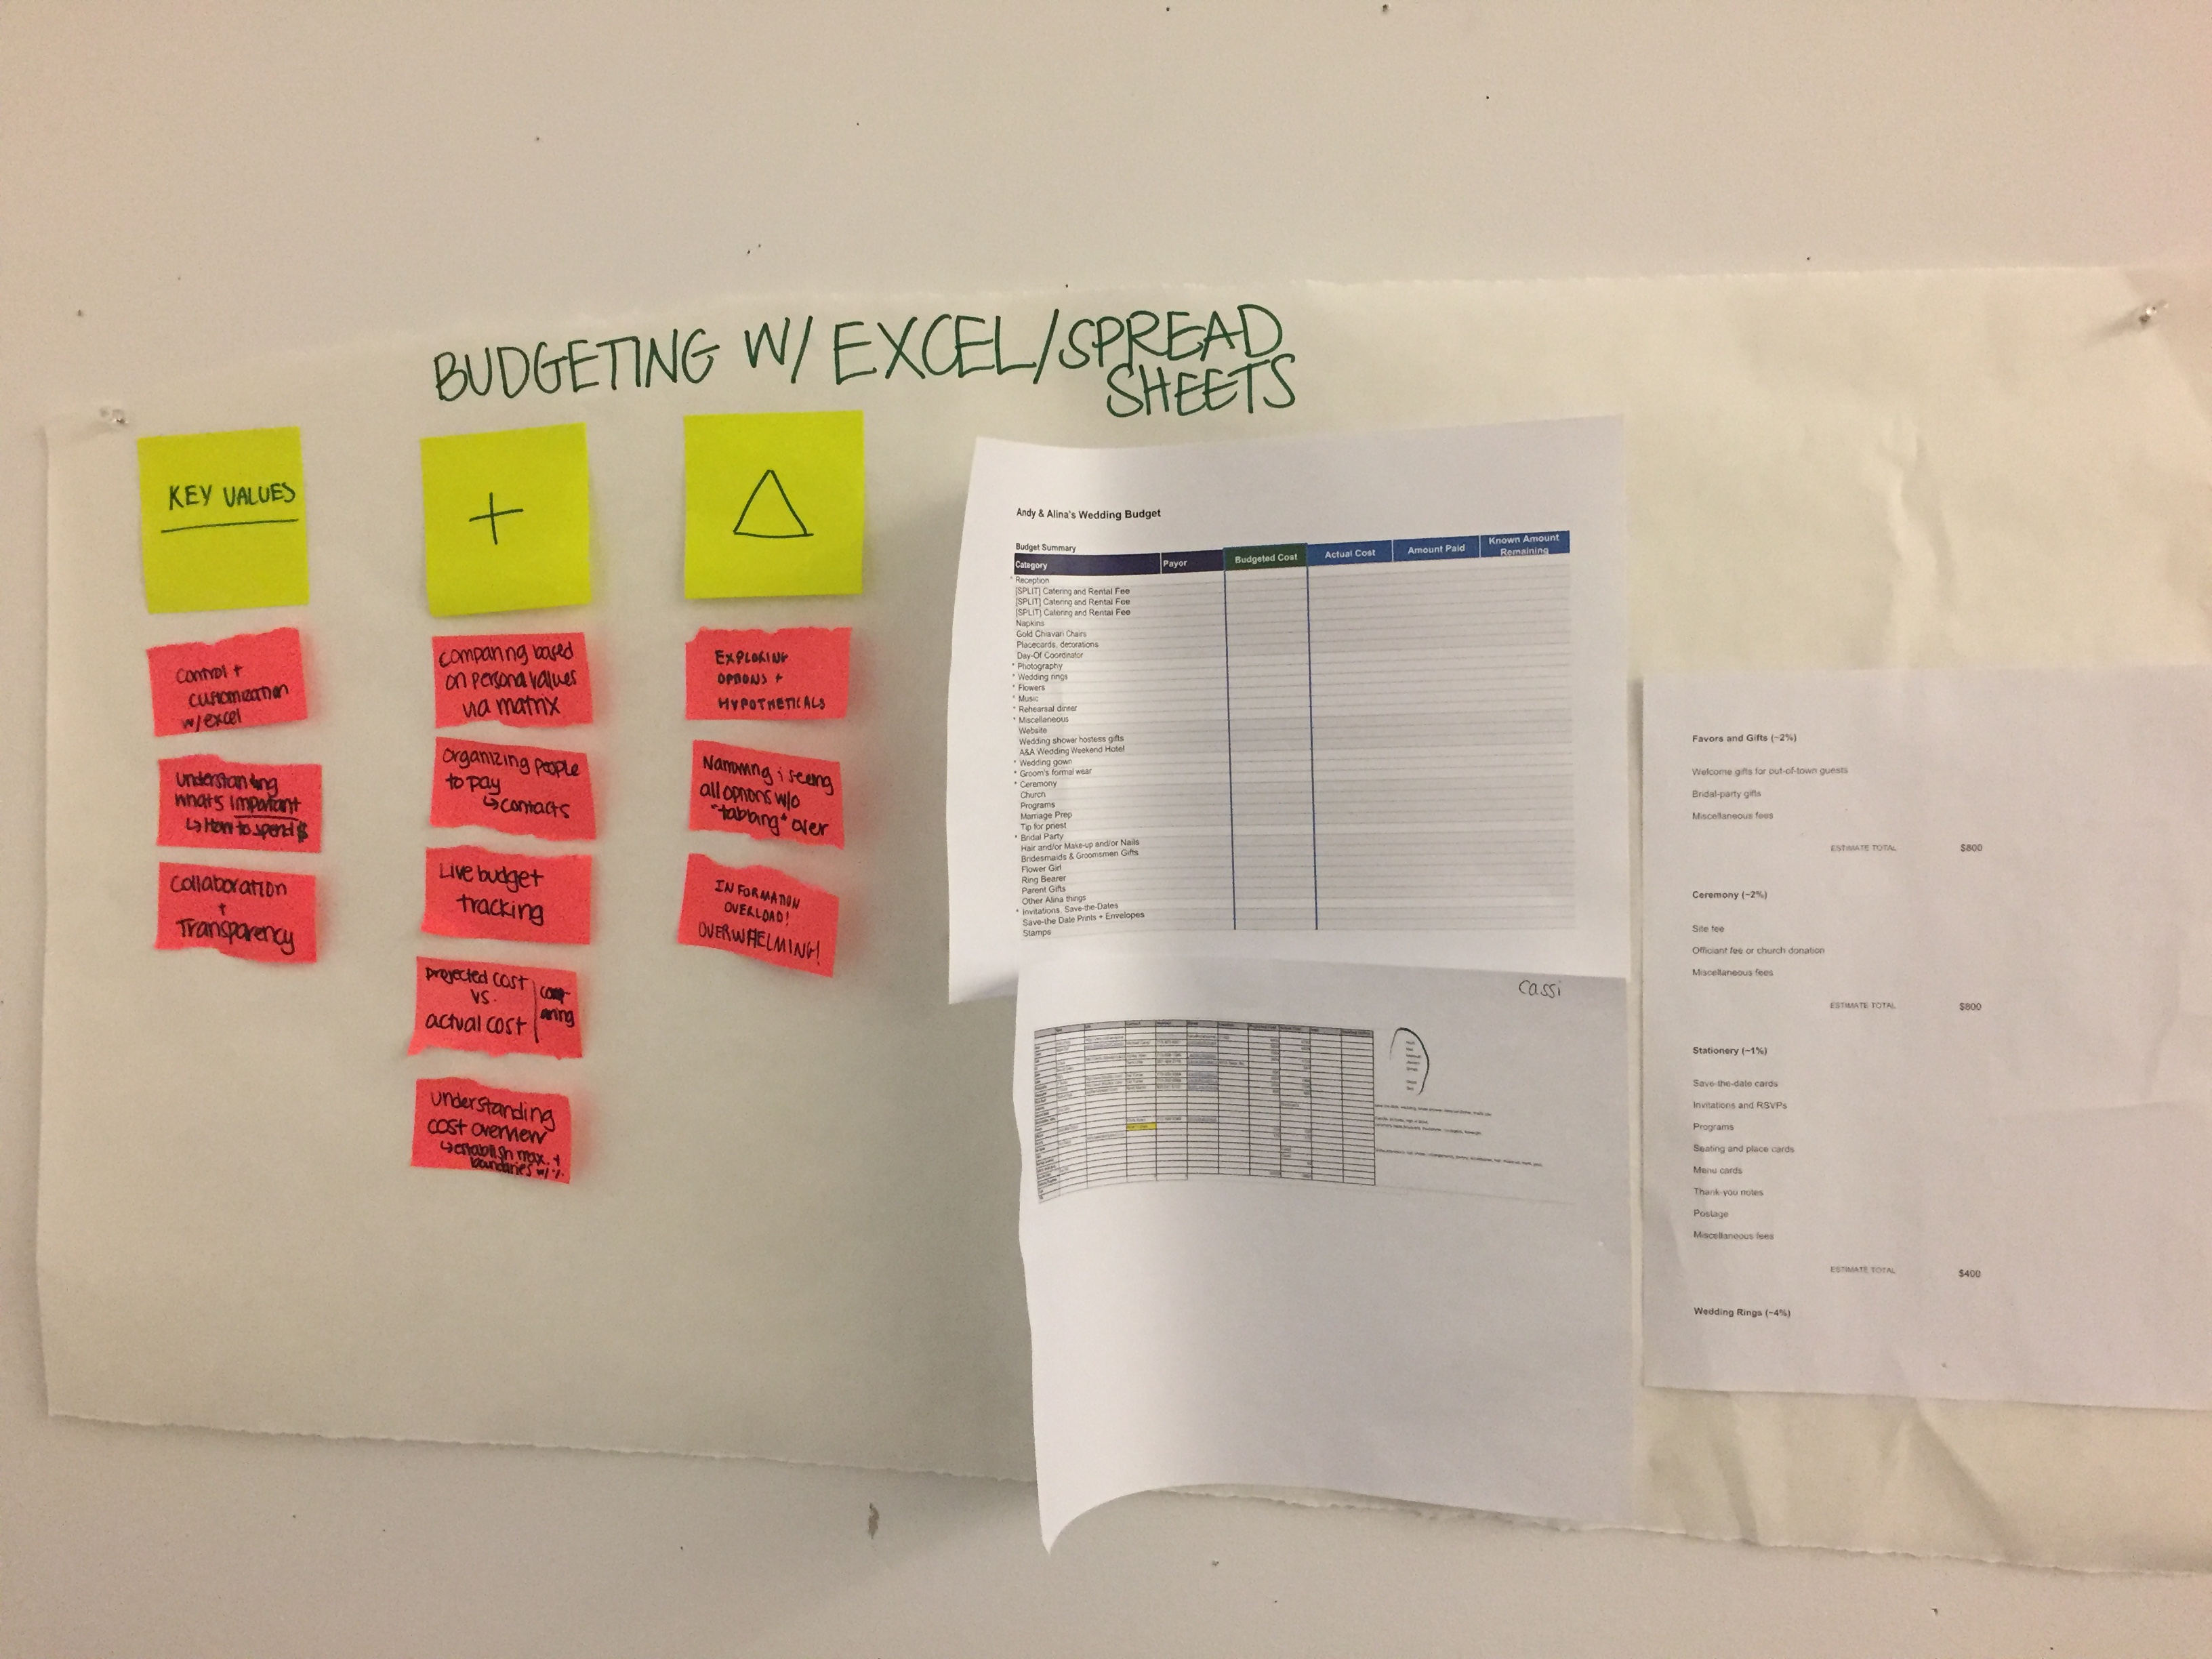 BUDGETING W/ EXCEL/SPREAD
SHEETS
KEY VALUES
Control +
customization
w/excel
Understanding
what's important
↳ How to spend $
Collaboration
+
Transparency
+
Comparing based
on personal values
via matrix
Organizing people
to pay
↳ contacts
Live budget
tracking
projected cost
vs.
actual cost
Understanding
cost overview
↳ establish max. +
boundaries w/ %
△
EXPLORING
OPTIONS +
HYPOTHETICALS
Narrowing & seeing
all options w/o
"tabbing" over
INFORMATION
OVERLOAD!
OVERWHELMING!
Andy & Alina's Wedding Budget
Budget Summary
Category Payor Budgeted Cost Actual Cost Amount Paid Known Amount Remaining
* Reception
[SPLIT] Catering and Rental Fee
[SPLIT] Catering and Rental Fee
[SPLIT] Catering and Rental Fee
Napkins
Gold Chiavari Chairs
Placecards, decorations
Day-Of Coordinator
* Photography
* Wedding rings
* Flowers
* Music
* Rehearsal dinner
* Miscellaneous
Website
Wedding shower hostess gifts
A&A Wedding Weekend Hotel
* Wedding gown
* Groom's formal wear
* Ceremony
Church
Programs
Marriage Prep
Tip for priest
* Bridal Party
Hair and/or Make-up and/or Nails
Bridesmaids & Groomsmen Gifts
Flower Girl
Ring Bearer
Parent Gifts
Other Alina things
* Invitations, Save-the-Dates
Save-the Date Prints + Envelopes
Stamps
Cassi
Favors and Gifts (~2%)
Welcome gifts for out-of-town guests
Bridal-party gifts
Miscellaneous fees
ESTIMATE TOTAL $800
Ceremony (~2%)
Site fee
Officiant fee or church donation
Miscellaneous fees
ESTIMATE TOTAL $800
Stationery (~1%)
Save-the-date cards
Invitations and RSVPs
Programs
Seating and place cards
Menu cards
Thank-you notes
Postage
Miscellaneous fees
ESTIMATE TOTAL $400
Wedding Rings (~4%)